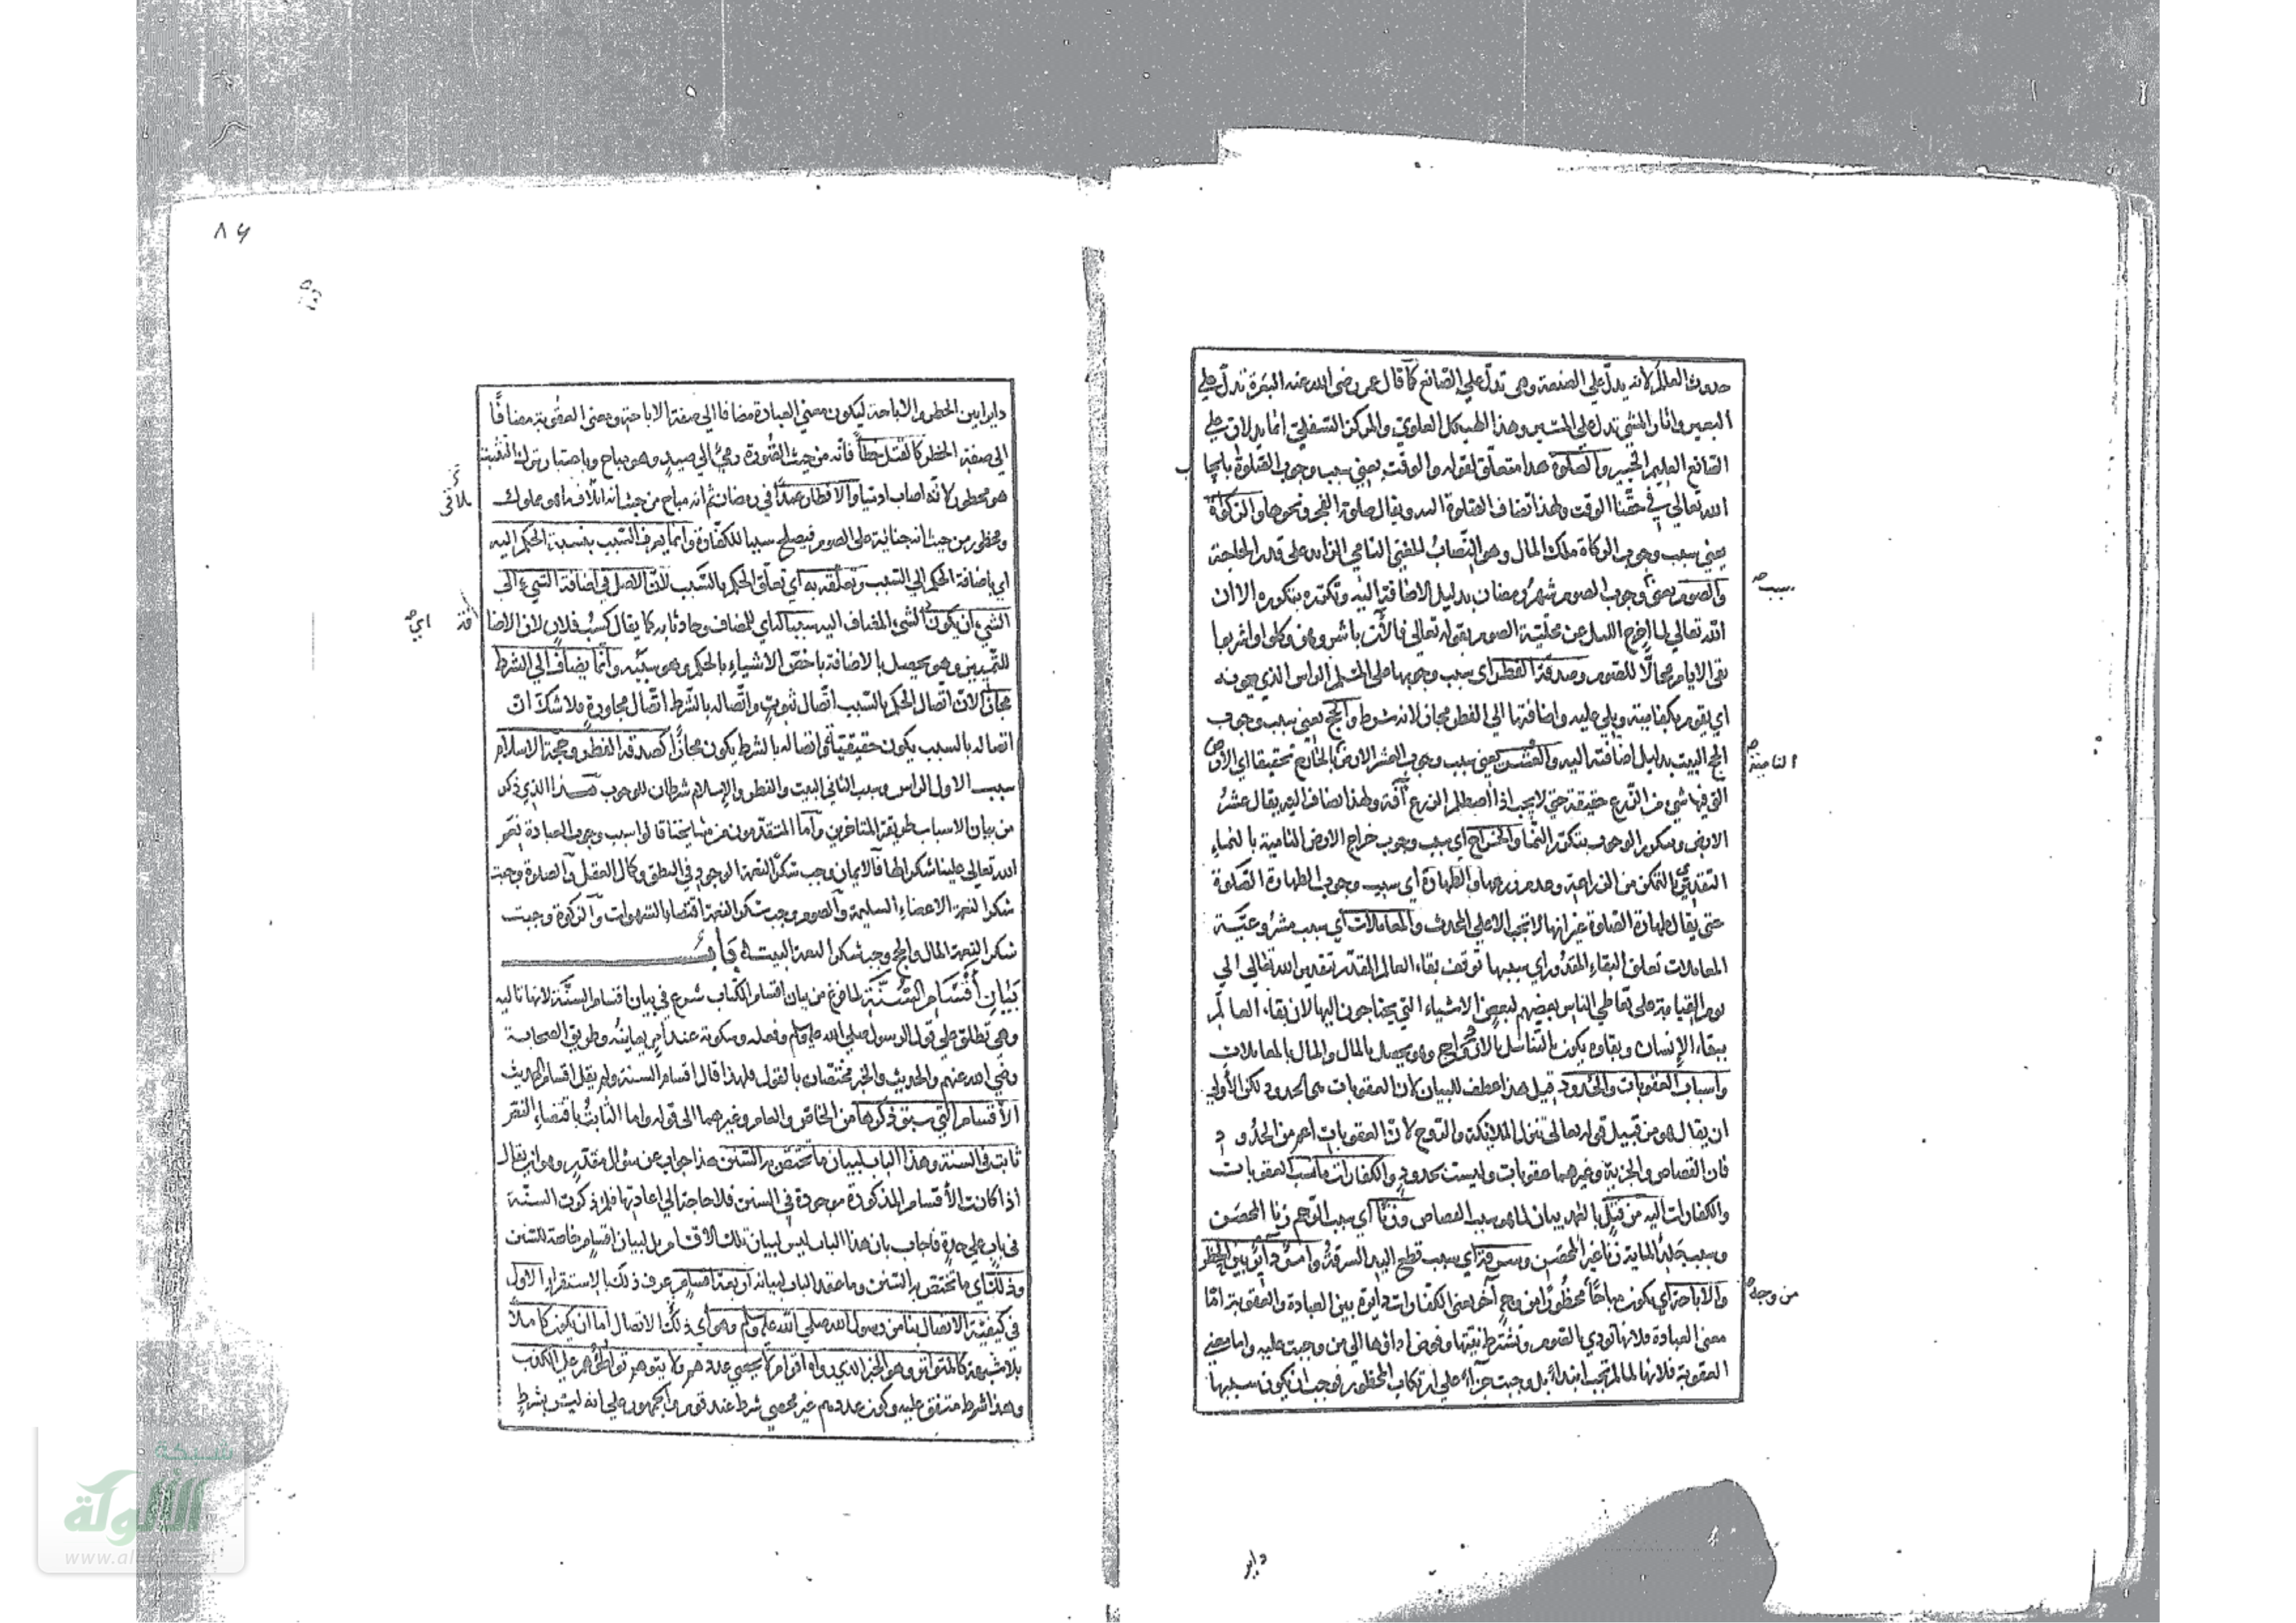 حدوث العالم لانه يدلّ علي الصنعة وهى تدلّ علي الصانع كما قال عمر رضى الله عنه البعرة تدلّ علي
البعير واثار المشى تدل علي المسير وهذا الهيكل العلوي والمركز السفلي اما يدلان علي
الصانع العليم الخبير والصلوة هذا متعلّق لقوله والوقت يعني سبب وجوب الصلوة بايجا
ب
الله تعالي في حقّنا الوقت ولهذا تضاف الصلوة اليه ويقال صلوة الفجر ونحوها والزكوة
يعني سبب وجوب الزكاة ملك المال وهو النّصابُ المغني النامي الزايد علي قدر الحاجة
والصوم يعني وجوب الصوم شهر رمضان بدليل الاضافة اليه وتكرّره بتكرره الا ان
سبب صح
الله تعالي لما اخرج الليل عن محلّية الصوم بقوله تعالي فالآن باشروهن وكلوا واشربوا
بقى الايام محالّا للصوم وصدقة الفطر اى سبب وجوبها على المسلم الراس الذي يمونه
اي يقوم بكفايته ويلي عليه واضافتها الي الفطر مجاز لانه شرط والحج يعني سبب وجوب
الحج البيت بدليل اضافته اليه والعشر يعني سبب وجوب العشر الارض بالخارج تحقيقا اي الارض
النامية صح
التى فيها شي من الزرع حقيقة حتي لا يجب اذا اصطلم الزرع آفة ولهذا تضاف اليه يقال عشرُ
الارض ويتكرر الوجوب بتكرر النّما والخراج اي سبب وجوب خراج الارض النامية بالنماء
التقديري بالتمكن من الزراعة وعدم زرعها والطهارة اي سبب وجوب الطهارة الصلوة
حتى يقال طهارة الصلوة غير انها لا تجب الا علي المحدث والمعاملات اي سبب مشروعيّة
المعاملات تعلق البقاء المقدور اي سببها توقف بقاء العالم المقدّر بتقدير الله تعالي الي
يوم القيامة على تعاطي الناس بعضهم لبعض الاشياء التي يحتاجون اليها لان بقاء العالم
ببقاء الانسان وبقاوه يكون بالتناسل بالازدواج وهو يحصل بالمال والمال بالمعاملات
واسباب العقوبات والحدود قيل هذا عطف للبيان لان العقوبات هى الحدود لكن الأولي
ان يقال هو من قبيل قوله تعالى تنزل الملائكة والروح لانّ العقوبات اعم من الحدود
فان القصاص والجزية وغيرهما عقوبات وليست بحدود والكفارات ما نسب العقوبات
والكفارات اليه من قتل بالظهر بيان لما هو سبب القصاص وزنًا اي سبب الرجم زنا المحصن
وسبب جلد المائة زنا غير المحصن وسرقة اي سبب قطع اليد السرقة وامر دائر بين الحظر
والاباحة اي يكون مباحًا محظورًا من وجهٍ آخر يعنى الكفارات دايرة بين العبادة والعقوبة امّا
من وجه صح
معنى العبادة فلانها تودي بالصوم وتشترط نيّتها وفوض اداؤها الي من وجبت عليه واما معني
العقوبة فلانها لما لم تجب ابتداءً بل وجبت جزاءً علي ارتكاب المحظور فوجب ان يكون سببها
داير
٨٦
دايرا بين الحظر والاباحة ليكون معني العبادة مضافا الي صفة الاباحة ومعنى العقوبة مضافًا
الي صفة الحظر كالقتل خطأ فانه من حيث الصُّورة رميٌ الي صيدٍ وهو مباح وباعتبار ترك التثبّت
هو محظور لانّه اصاب ادميا والافطار عمدًا في رمضان ثم انه مباح من حيث انه اتلاف ما هو مملوك
يلاقى
ومحظور من حيث انه جناية على الصوم فيصلح سببا للكفّارة وانما يعرف السّبب بنسبة الحكم اليه
اي باضافة الحكم الي السّبب وتعلّقه به اي تعلّق الحكم بالسّبب لانّ الاصل في اضافة الشيء الى
الشيء ان يكون الشيء المضاف اليه سببا له اي للمضاف وحادثا به كما يقال كسْبُ فلانٍ لان الاضا
فة
اي صح
للتّمييز وهو يحصل بالاضافة باخصّ الاشياء بالحكم وهو سببه وانّما يضاف الي الشرط
مجازًا لانّ اتّصال الحكم بالسّبب اتّصال ثبوتٍ واتّصاله بالشّرط اتّصال مجاورةٍ فلا شكّ ان
اتصاله بالسبب يكون حقيقيًّا واتصاله بالشرط يكون مجازًا كصدقة الفطر وحجة الاسلام
سبب الاول الراس وسبب الثاني البيت والفطر والاسلام شرطان للوجوب هذا الذي ذكر
من بيان الاسباب طريقة المتاخرين وأما المتقدّمون من مشايخنا قالوا سبب وجوب العبادة نعم
الله تعالي علينا شكرا لها فالايمان وجب شكر النعمة الوجود في النطق وكمال العقل والصلوة وجبت
شكرا لنعمة الاعضاء السليمة والصوم وجب شكر النعمة اقتضاء الشهوات والزكوة وجبت
شكر النعمة المال والحج وجب شكر النعمة البيت باب
بَيَانِ أَقْسَامِ السُّنَّةِ لما فرغ من بيان اقسام الكتاب شرع في بيان اقسام السنّة لانها تاليه
وهى تطلق علي قول الرسول صلي الله عليه وسلم وفعله وسكوته عند امرٍ يعاينه وطريق الصحابة
رضي الله عنهم والحديث والخبر مختصّان بالقول فلهذا قال اقسام السنة ولم يقل اقسام الحديث
الأقسام التي سبق ذكرها من الخاص والعام وغيرهما الى قوله واما الثابتُ باقتضاء النصّ
ثابت في السنة وهذا الباب لبيان ما تختصّ به السّنن هذا جواب عن سؤال مقدّرٍ وهو ان يقال
اذا كانت الأقسام المذكورة موجودة في السنن فلا حاجة الي اعادتها فلم ذكرت السنّة
في بابٍ علي حدةٍ فاجاب بان هذا الباب ليس لبيان تلك الاقسام بل لبيان اقسامٍ خاصة للسّنن
وذلك اي ما تختصّ به السّنن وما عقد الباب لبيانه اربعة اقسامٍ عرف ذلك بالاستقراء الاول
في كيفيّة الاتصال بنا من رسول الله صلي الله عليه وسلم وهو اي ذلك الاتصال اما ان يكون كاملًا
بلا شبهة كالمتواتر وهو الخبر الذي رواه اقوام لا يحصي عددهم ولا يتوهم تواطؤهم علي الكذب
وهذا شرط متفق عليه وكون عددهم غير محصي شرط عند قوم والجمهور علي انه ليس بشرطٍ
شبكة
الألوكة
www.alukah.net